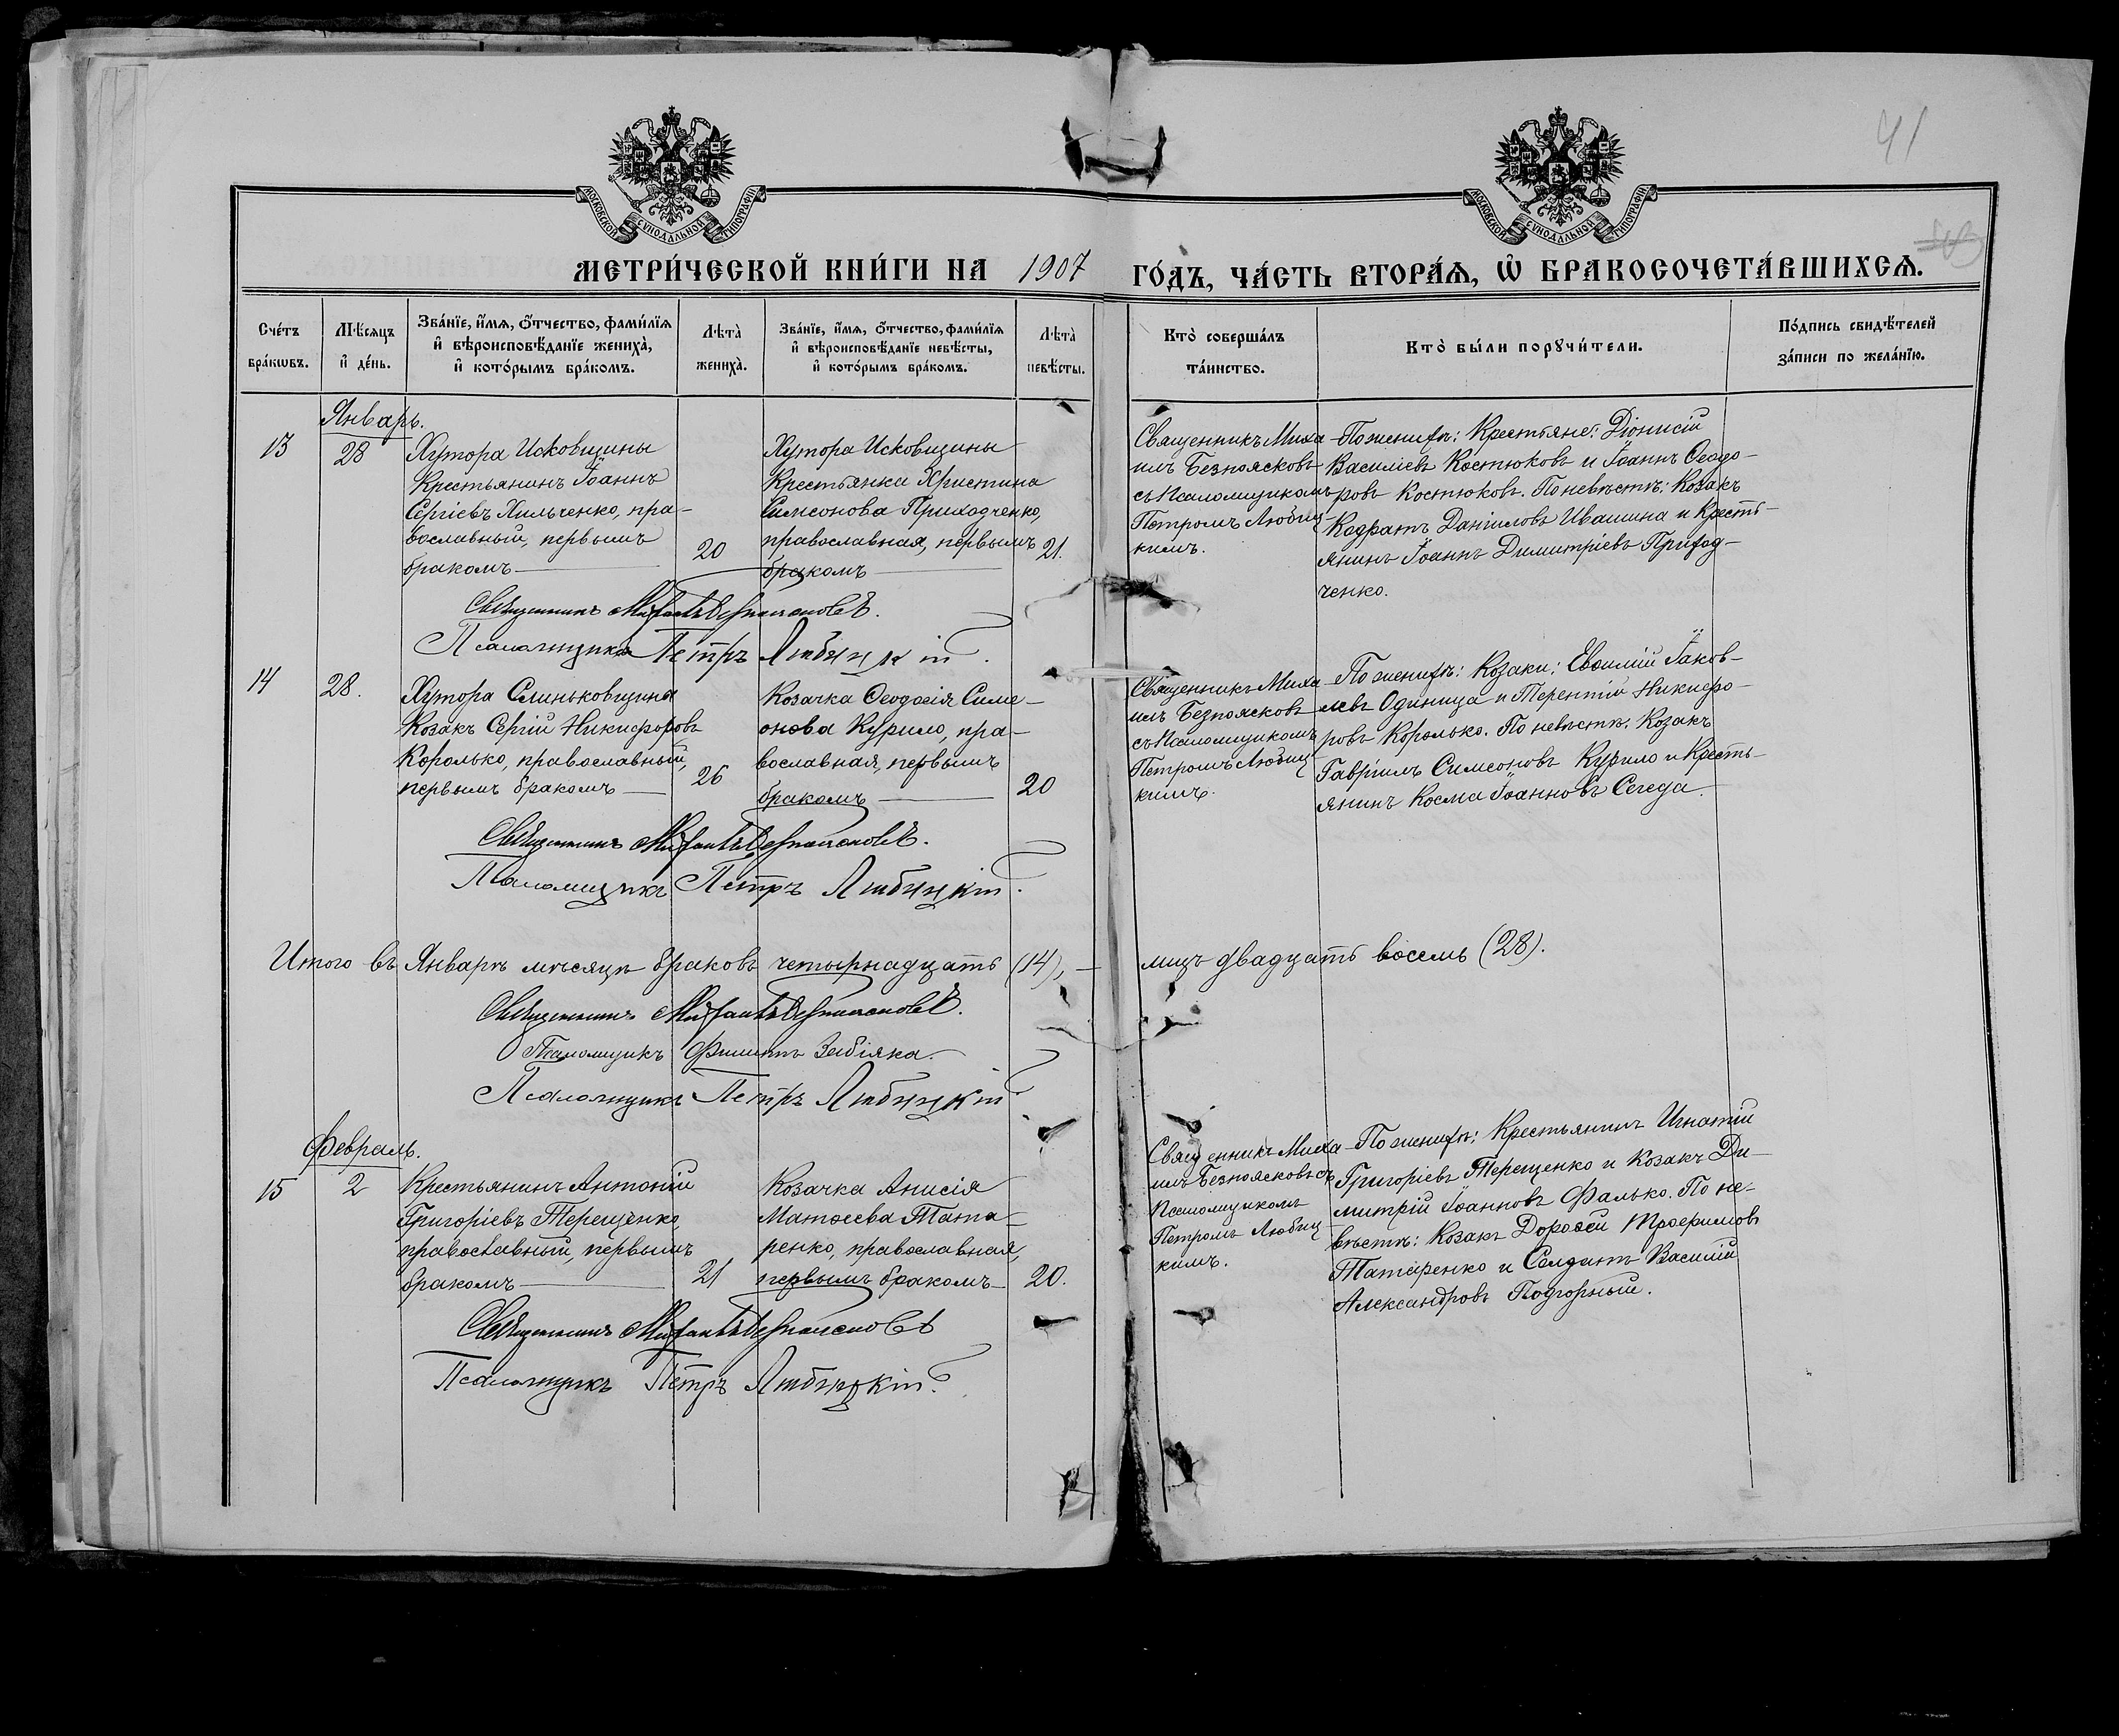 41
МОСКОВСКОЙ СѴНОДАЛЬНОЙ ТИПОГРАФІИ
МОСКОВСКОЙ СѴНОДАЛЬНОЙ ТИПОГРАФІИ
МЕТРИ́ЧЕСКОЙ КНИ́ГИ НА 1907 ГО́ДЪ, ЧА́СТЬ ВТОРА́Я, Ѿ БРАКОСОЧЕТА́ВШИХСЯ.
Сче́тъ бра́кѡвъ.
Мѣ́сяцъ и҆ де́нь.
Зва́нїе, и҆́мя, о҆́тчество, фами́лїя и҆ вѣроисповѣ́данїе жениха̀, и҆ кото́рымъ бра́комъ.
Лѣта̀ жениха̀.
Зва́нїе, и҆́мя, о҆́тчество, фами́лїя и҆ вѣроисповѣ́данїе невѣ́сты, и҆ кото́рымъ бра́комъ.
Лѣта̀ невѣ́сты.
Кто̀ соверша́лъ та́инство.
Кто̀ бы́ли порꙋчи́тели.
По́дпись свидѣ́телей за́писи по жела́нїю.
Январь.
13
28
Хутора Исковщины
Крестьянинъ Іоаннъ
Сергіевъ Хильченко, пра-
вославный, первымъ
бракомъ
20
Хутора Исковщины
Крестьянка Христина
Симеонова Приходченко,
православная, первымъ
бракомъ
21.
Священникъ Миха-
илъ Безпоясковъ
съ Псаломщикомъ
Петромъ Любиц-
кимъ.
По женихѣ: Крестьяне: Діонисій
Василіевъ Костюковъ и Іоаннъ Ѳеодо-
ровъ Костюковъ. По невѣстѣ: Козакъ
Кодратъ Даніиловъ Ивашина и Кресть-
янинъ Іоаннъ Димитріевъ Приход-
ченко.
Священникъ Михаилъ Безпоясковъ.
Псаломщикъ Петръ Любицкій.
14
28.
Хутора Слиньковщина
Козакъ Сергій Никифоровъ
Королько, православный,
первымъ бракомъ
26
Козачка Ѳеодосія Симе-
онова Курило, пра-
вославная, первымъ
бракомъ
20
Священникъ Миха-
илъ Безпоясковъ
съ Псаломщикомъ
Петромъ Любиц-
кимъ.
По женихѣ: Козаки: Евѳимій Іаков-
левъ Одиница и Терентій Никифо-
ровъ Королько. По невѣстѣ: Козакъ
Гавріилъ Симеоновъ Курило и Кресть-
янинъ Косма Іоанновъ Сегеда.
Священникъ Михаилъ Безпоясковъ.
Псаломщикъ Петръ Любицкій.
Итого въ Январѣ мѣсяцѣ браковъ четырнадцать (14), — лицъ двадцать восемь (28).
Священникъ Михаилъ Безпоясковъ.
Псаломщикъ Филиппъ Забіяка.
Псаломщикъ Петръ Любицкій
Февраль.
15
2
Крестьянинъ Антоній
Григоріевъ Терещенко
православный, первымъ
бракомъ
21
Козачка Анисія
Матѳеева Тата-
ренко, православная,
первымъ бракомъ
20.
Священникъ Миха-
илъ Безпоясковъ съ
Псаломщикомъ
Петромъ Любиц-
кимъ.
По женихѣ: Крестьянинъ Игнатій
Григоріевъ Терещенко и Козакъ Ди-
митрій Іоанновъ Фалько. По не-
вѣстѣ: Козакъ Дороѳей Трофимовъ
Татаренко и Солдатъ Василій
Александровъ Подгорный.
Священникъ Михаилъ Безпоясковъ
Псаломщикъ Петръ Любицкій.